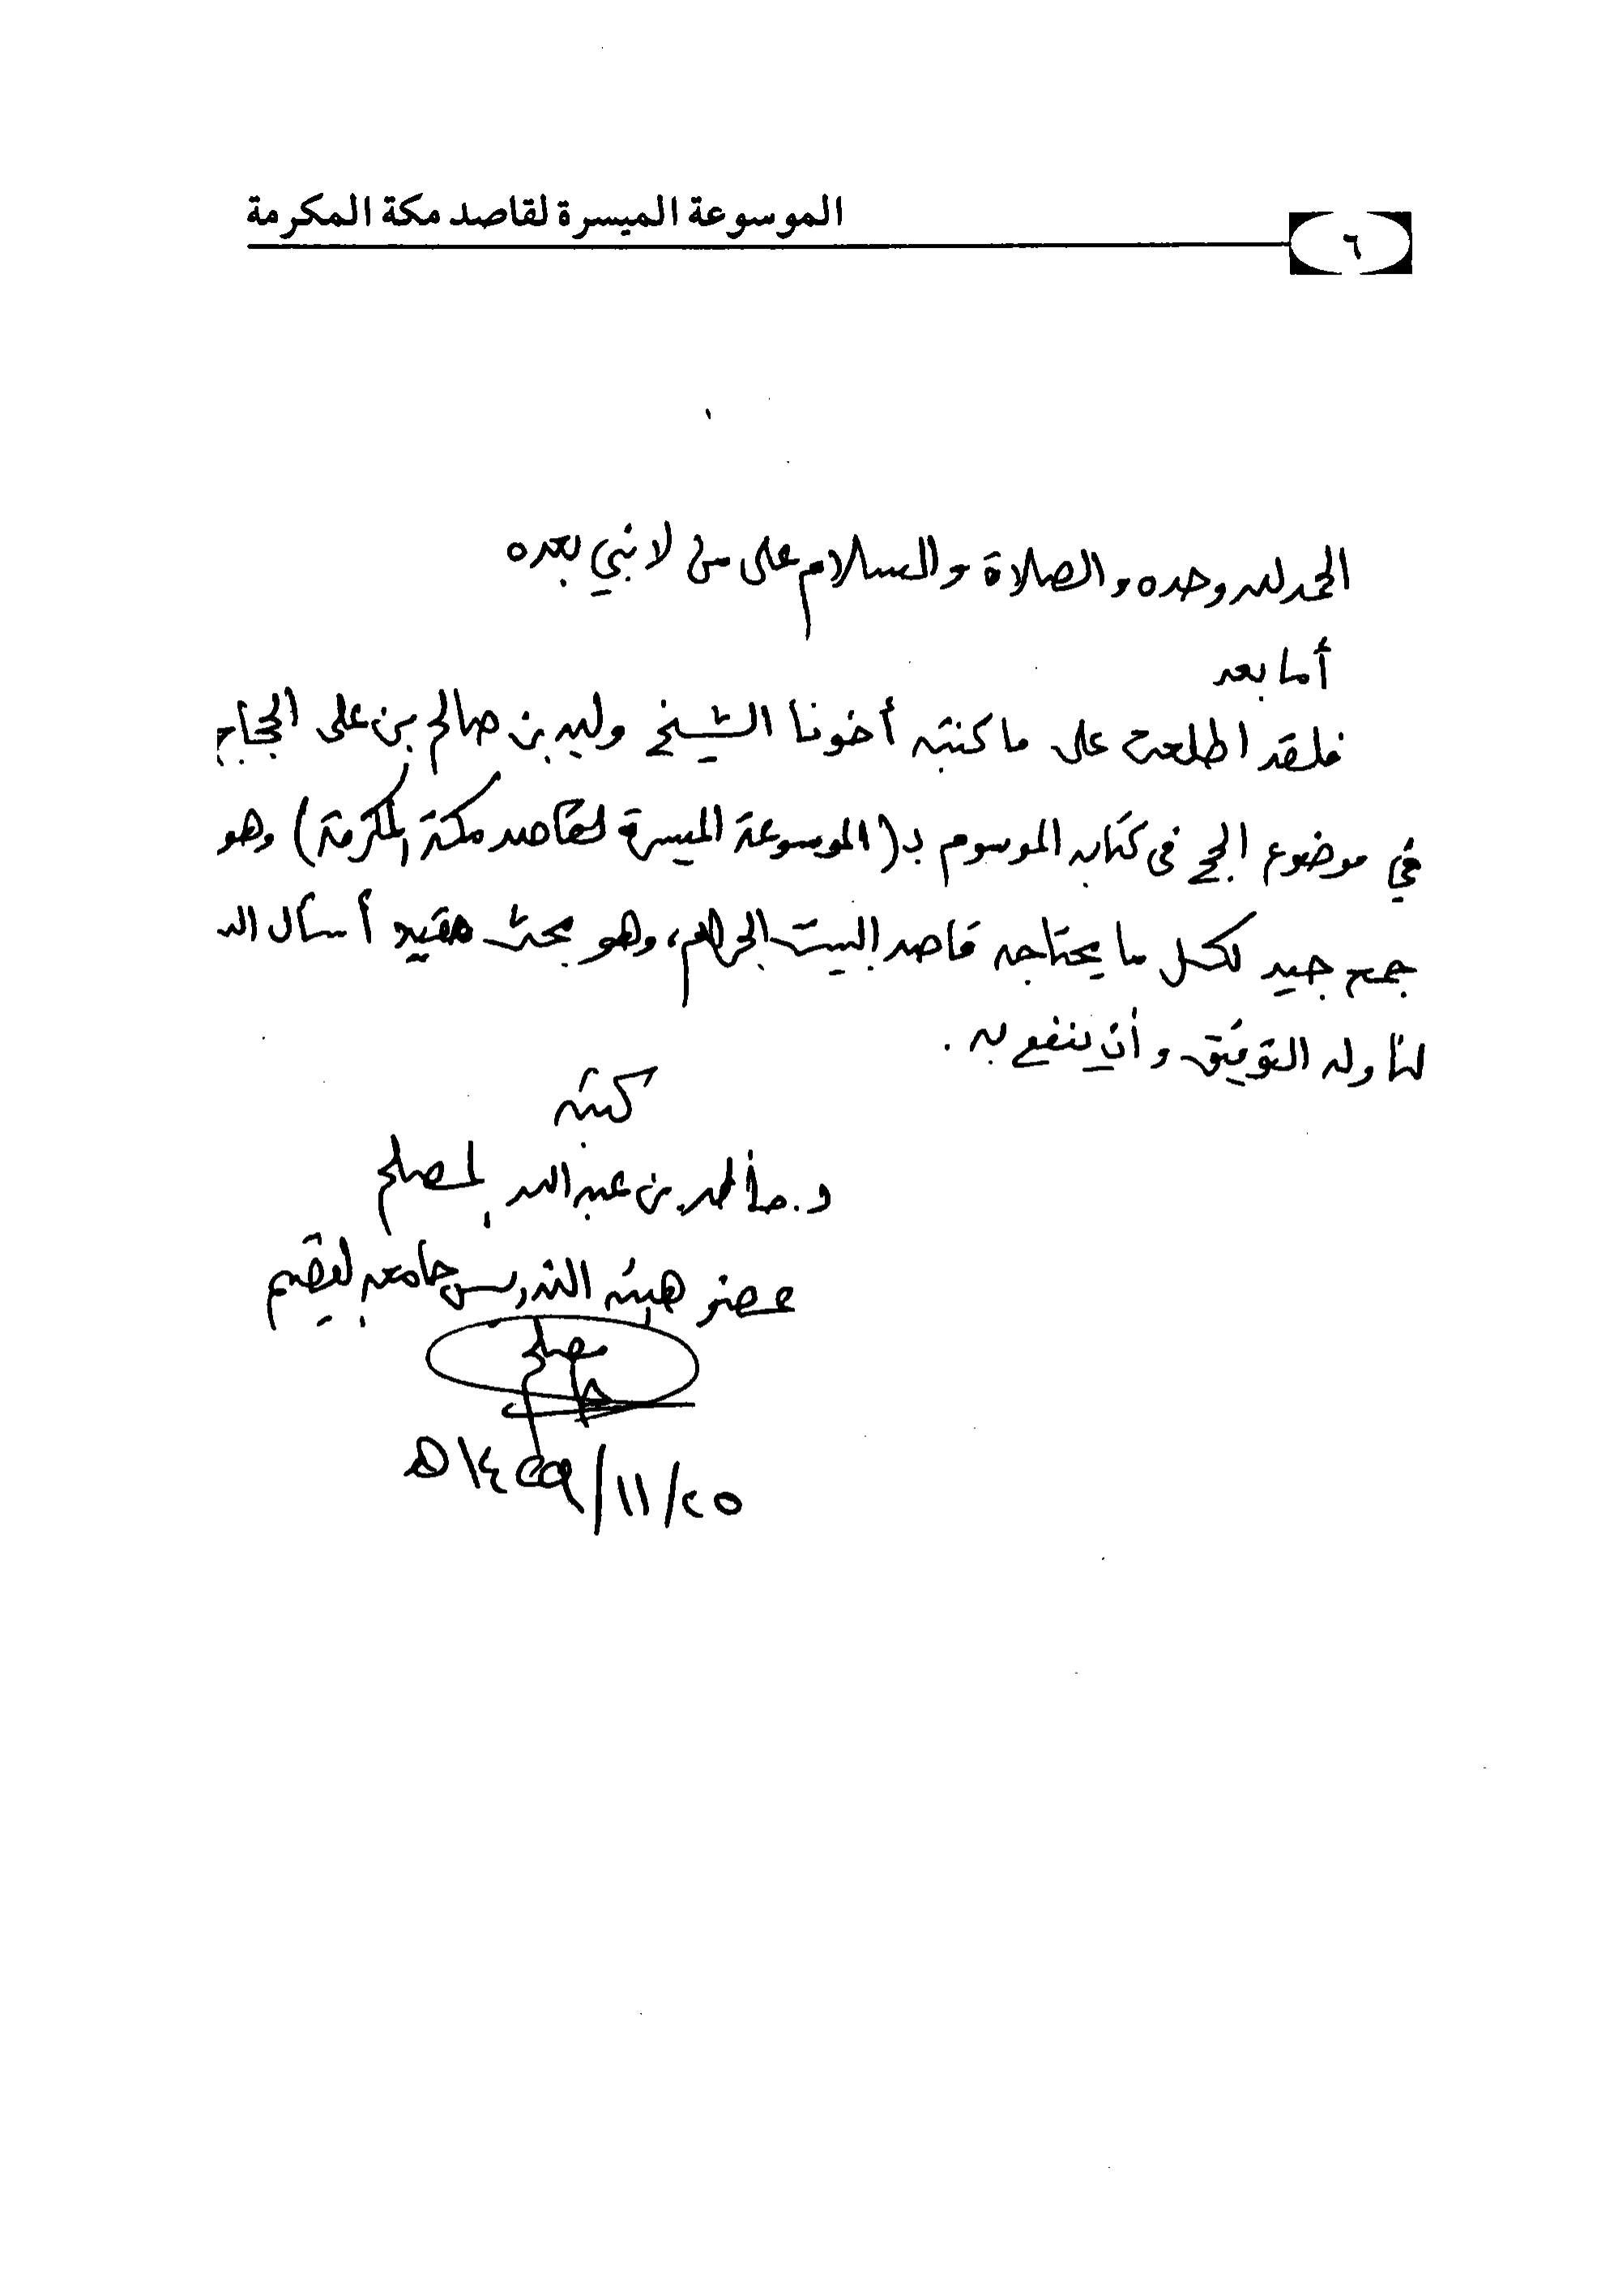 الموسوعة الميسرة لقاصد مكة المكرمة
٦
الحمد لله وحده والصلاة والسلام على من لا نبي بعده
أما بعد
فلقد اطلعت على ما كتبه أخونا الشيخ وليد بن صالح بن على الحجاج
في موضوع الحج فى كتابه الموسوم بـ (الموسوعة الميسرة لقاصد مكة المكرمة) وهو
جمع جيد لكل ما يحتاجه قاصد البيت الحرام، وهو بحث مفيد أسأل الله
لنا وله التوفيق وأن ينفع به .
كتبه
د. خالد بن عبد الله المصلح
عضو هيئة التدريس جامعة القصيم
٢٥/١١/١٤٢٩هـ